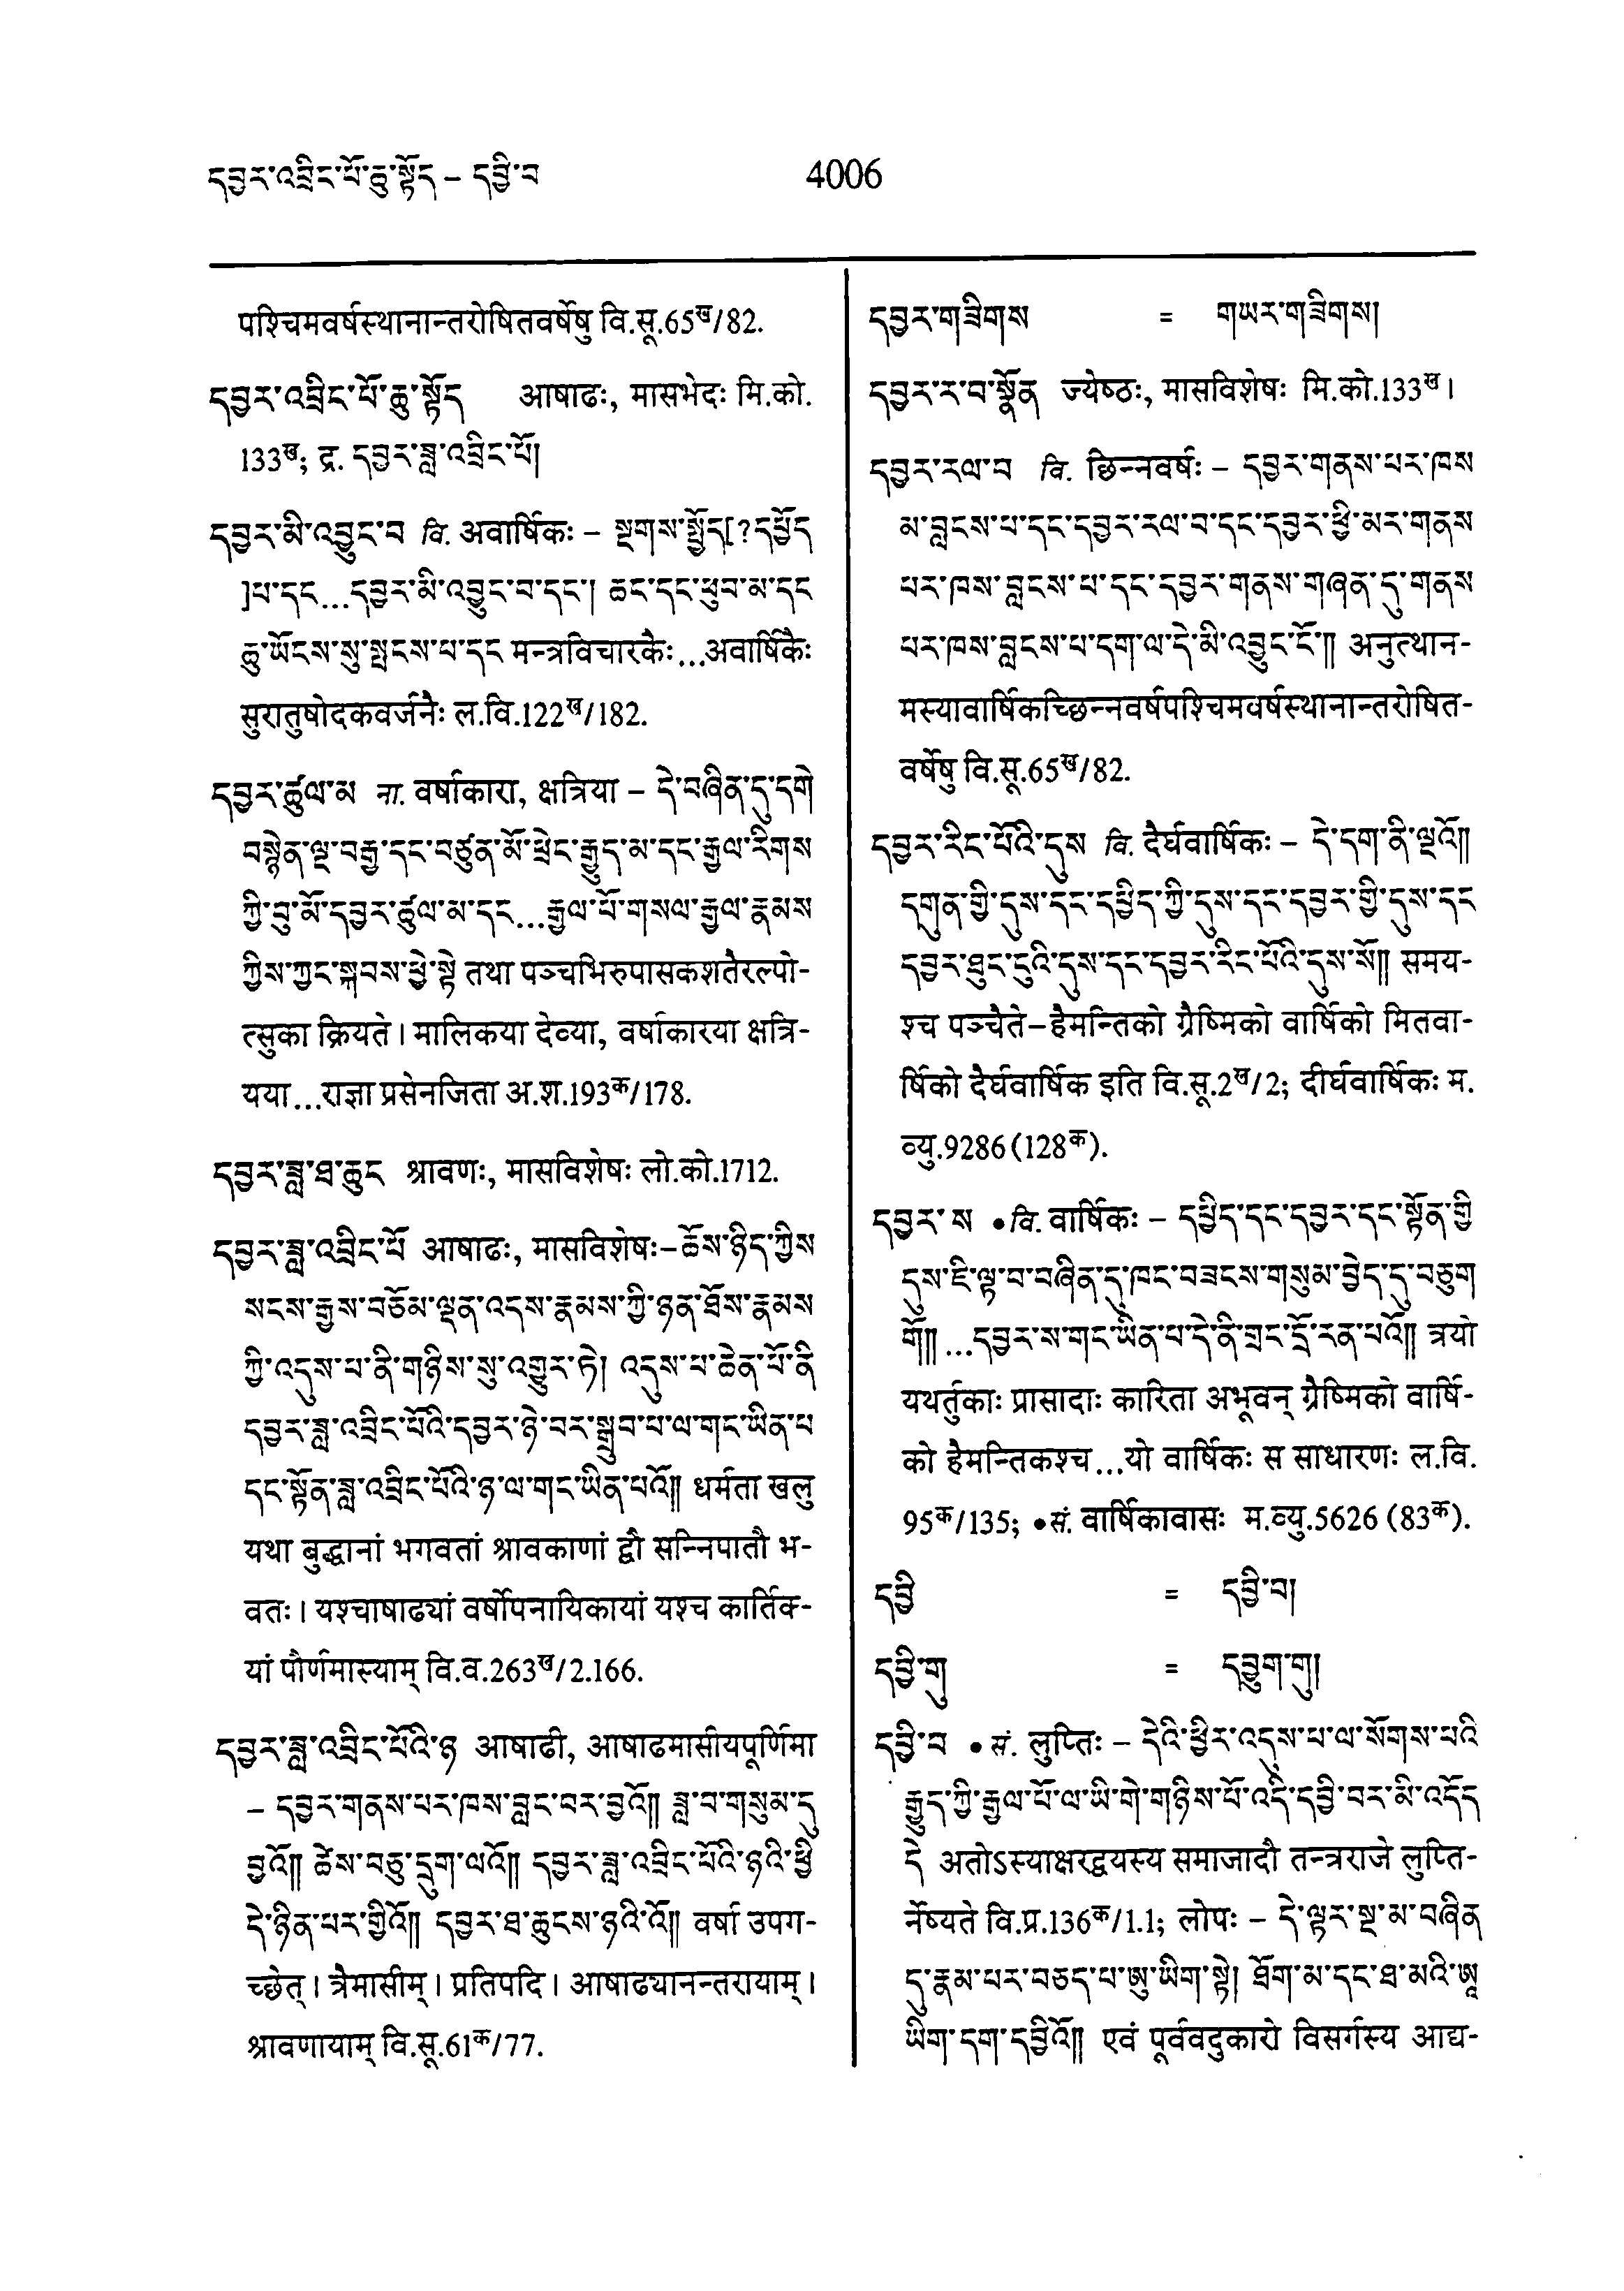 དབྱར་འབྲིང་པོ་ཆུ་སྟོད – དབྱི་བ
4006
पश्चिमवर्षस्थानान्तरोषितवर्षेषु वि.सू.65ख/82.
དབྱར་འབྲིང་པོ་ཆུ་སྟོད आषाढः, मासभेदः मि.को.
133ख; द्र. དབྱར་ཟླ་འབྲིང་པོ།
དབྱར་མི་འབྱུང་བ वि. अवार्षिकः – སྔགས་སྤྱོད[?དཔྱོད
]པ་དང...དབྱར་མི་འབྱུང་བ་དང་། ཆང་དང་ཕུབ་མ་དང
ཆུ་ཡོངས་སུ་སྤངས་པ་དང मन्त्रविचारकैः...अवार्षिकैः
सुरातुषोदकवर्जनैः ल.वि.122ख/182.
དབྱར་ཚུལ་མ ना. वर्षाकारा, क्षत्रिया – དེ་བཞིན་དུ་དགེ
བསྙེན་ལྔ་བརྒྱ་དང་བཙུན་མོ་ཕྲེང་རྒྱུད་མ་དང་རྒྱལ་རིགས
ཀྱི་བུ་མོ་དབྱར་ཚུལ་མ་དང...རྒྱལ་པོ་གསལ་རྒྱལ་རྣམས
ཀྱིས་ཀྱང་སྐབས་ཕྱེ་སྟེ तथा पञ्चभिरुपासकशतैरल्पो-
त्सुका क्रियते। मालिकया देव्या, वर्षाकारया क्षत्रि-
यया...राज्ञा प्रसेनजिता अ.श.193क/178.
དབྱར་ཟླ་ཐ་ཆུང श्रावणः, मासविशेषः लो.को.1712.
དབྱར་ཟླ་འབྲིང་པོ आषाढः, मासविशेषः–ཆོས་ཉིད་ཀྱིས
སངས་རྒྱས་བཅོམ་ལྡན་འདས་རྣམས་ཀྱི་ཉན་ཐོས་རྣམས
ཀྱི་འདུས་པ་ནི་གཉིས་སུ་འགྱུར་ཏེ། འདུས་པ་ཆེན་པོ་ནི
དབྱར་ཟླ་འབྲིང་པོའི་དབྱར་ཉེ་བར་སྒྲུབ་པ་ལ་གང་ཡིན་པ
དང་སྟོན་ཟླ་འབྲིང་པོའི་ཉ་ལ་གང་ཡིན་པའོ༎ धर्मता खलु
यथा बुद्धानां भगवतां श्रावकाणां द्वौ सन्निपातौ भ-
वतः। यश्चाषाढ्यां वर्षोपनायिकायां यश्च कार्तिक-
यां पौर्णमास्याम् वि.व.263ख/2.166.
དབྱར་ཟླ་འབྲིང་པོའི་ཉ आषाढी, आषाढमासीयपूर्णिमा
– དབྱར་གནས་པར་ཁས་བླང་བར་བྱའོ༎ ཟླ་བ་གསུམ་དུ
བྱའོ༎ ཚེས་བཅུ་དྲུག་ལའོ༎ དབྱར་ཟླ་འབྲིང་པོའི་ཉའི་ཕྱི
དེ་ཉིན་པར་གྱིའོ༎ དབྱར་ཐ་ཆུངས་ཉའི་འོ༎ वर्षा उपग-
च्छेत्। त्रैमासीम्। प्रतिपदि। आषाढ्यानन्तरायाम्।
श्रावणायाम् वि.सू.61क/77.
དབྱར་གཟིགས = གཡར་གཟིགས།
དབྱར་ར་བ་སྣྲོན ज्येष्ठः, मासविशेषः मि.को.133ख।
དབྱར་རལ་བ वि. छिन्नवर्षः – དབྱར་གནས་པར་ཁས
མ་བླངས་པ་དང་དབྱར་རལ་བ་དང་དབྱར་ཕྱི་མར་གནས
པར་ཁས་བླངས་པ་དང་དབྱར་གནས་གཞན་དུ་གནས
པར་ཁས་བླངས་པ་དག་ལ་དེ་མི་འབྱུང་ངོ་༎ अनुत्थान-
मस्यावार्षिकच्छिन्नवर्षपश्चिमवर्षस्थानान्तरोषित-
वर्षेषु वि.सू.65ख/82.
དབྱར་རིང་པོའི་དུས वि. दैर्घवार्षिकः – དེ་དག་ནི་ལྔའོ༎
དགུན་གྱི་དུས་དང་དཔྱིད་ཀྱི་དུས་དང་དབྱར་གྱི་དུས་དང
དབྱར་ཐུང་ངུའི་དུས་དང་དབྱར་རིང་པོའི་དུས་སོ༎ समय-
श्च पञ्चैते–हैमन्तिको ग्रैष्मिको वार्षिको मितवा-
र्षिको दैर्घवार्षिक इति वि.सू.2ख/2; दीर्घवार्षिकः म.
व्यु.9286 (128क).
དབྱར་ས •वि. वार्षिकः – དཔྱིད་དང་དབྱར་དང་སྟོན་གྱི
དུས་ཇི་ལྟ་བ་བཞིན་དུ་ཁང་བཟངས་གསུམ་བྱེད་དུ་བཅུག
གོ༎།...དབྱར་ས་གང་ཡིན་པ་དེ་ནི་གྲང་དྲོ་རན་པའོ༎ त्रयो
यथर्तुकाः प्रासादाः कारिता अभूवन् ग्रैष्मिको वार्षि-
को हैमन्तिकश्च...यो वार्षिकः स साधारणः ल.वि.
95क/135; •सं. वार्षिकावासः म.व्यु.5626 (83क).
དབྱི = དབྱི་བ།
དབྱི་གུ = དབྱུག་གུ།
དབྱི་བ • सं. लुप्तिः – དེའི་ཕྱིར་འདུས་པ་ལ་སོགས་པའི
རྒྱུད་ཀྱི་རྒྱལ་པོ་ལ་ཡི་གེ་གཉིས་པོ་འདི་དབྱི་བར་མི་འདོད
དེ अतोऽस्याक्षरद्वयस्य समाजादौ तन्त्रराजे लुप्ति-
र्नेष्यते वि.प्र.136क/1.1; लोपः – དེ་ལྟར་སྔ་མ་བཞིན
དུ་རྣམ་པར་བཅད་པ་ཨུ་ཡིག་སྟེ། ཐོག་མ་དང་ཐ་མའི་ཨཱ
ཡིག་དག་དབྱིའོ༎ एवं पूर्ववदुकारो विसर्गस्य आद्य-